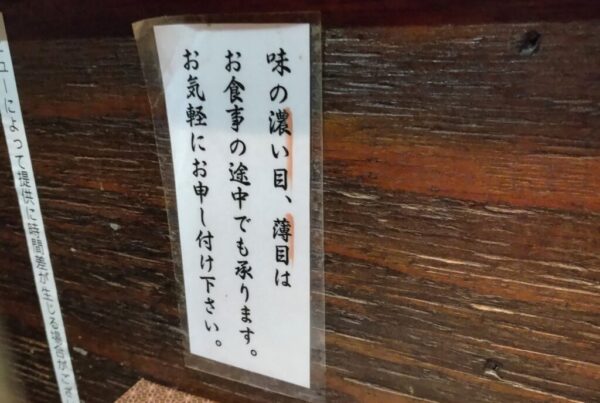 味の濃い目、薄目は
お食事の途中でも承ります。
お気軽にお申し付け下さい。
ューによって提供に時間差が生じる場合がござ